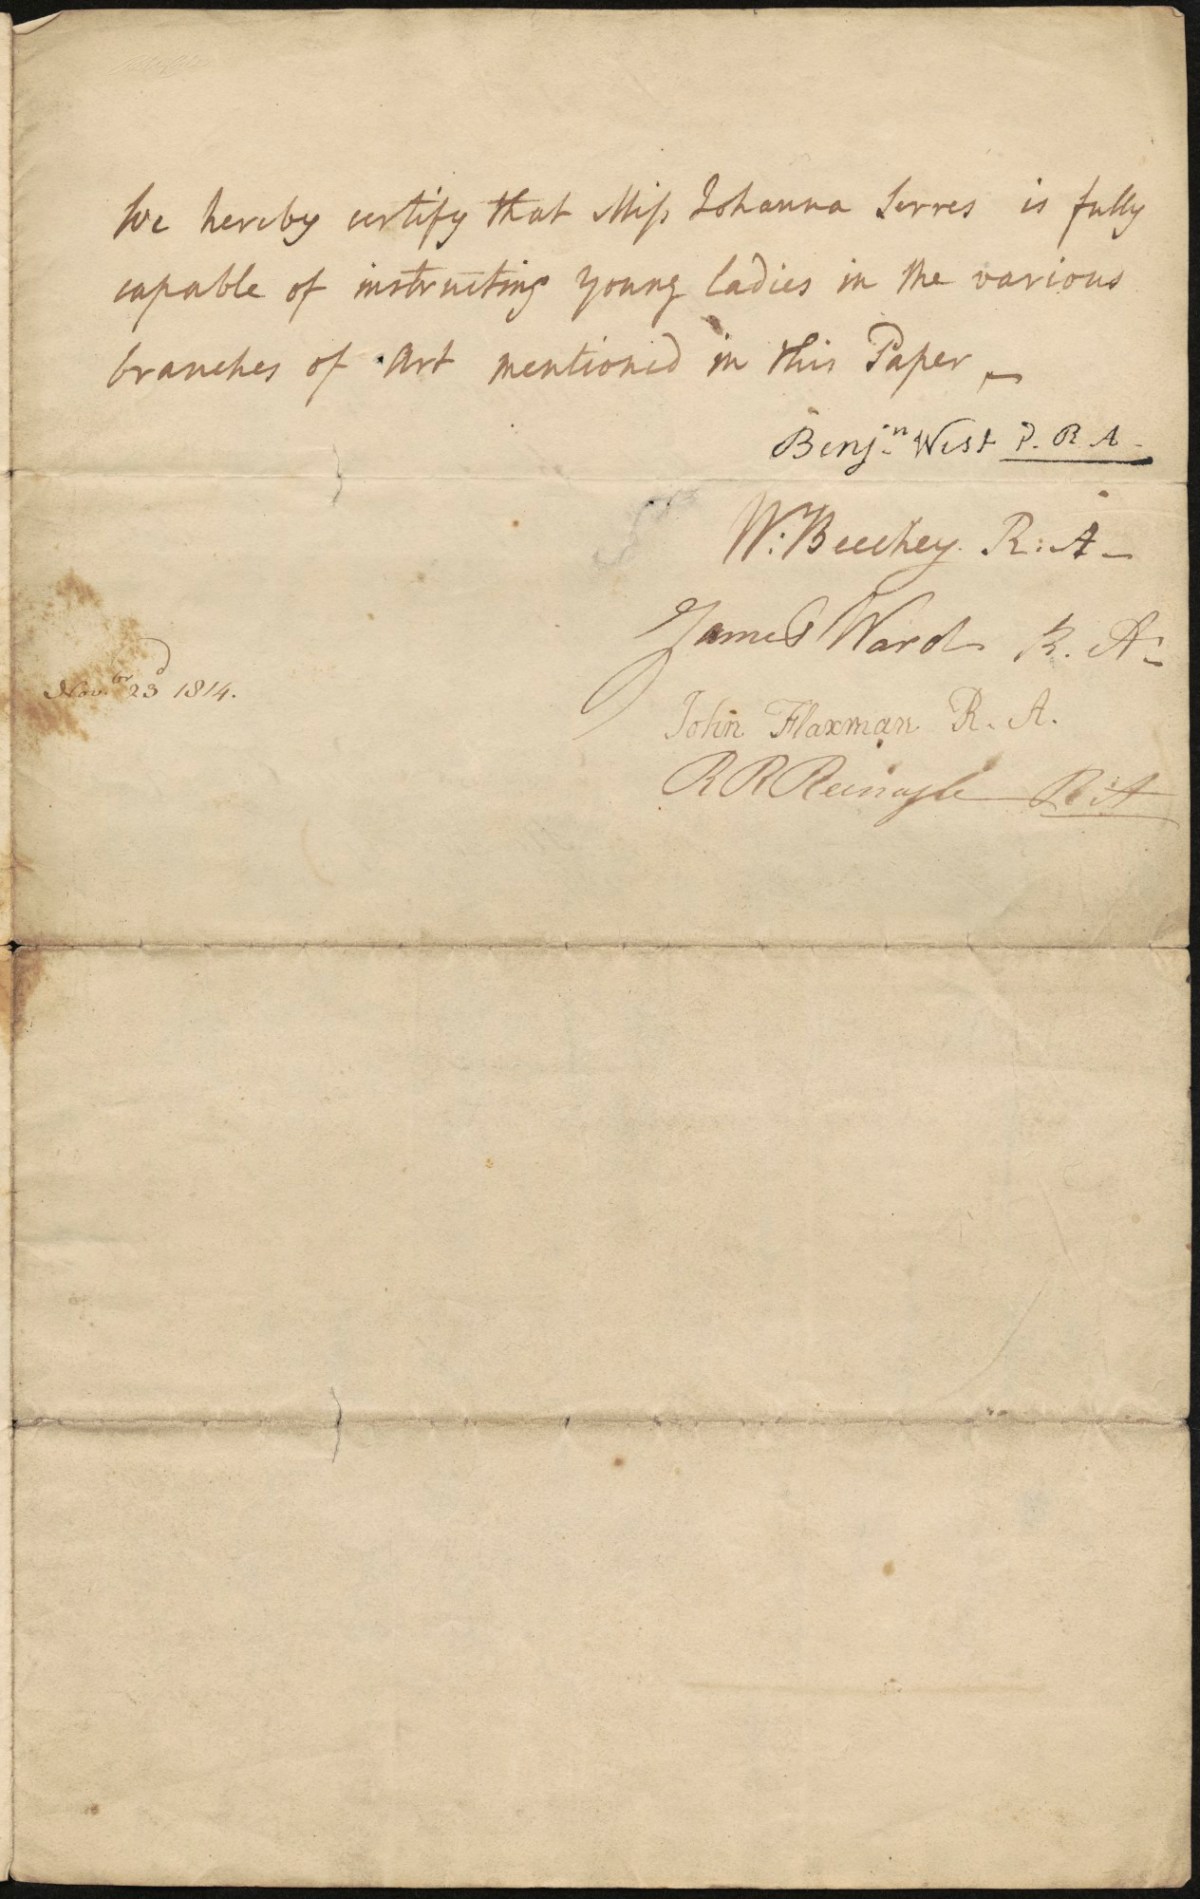 We hereby certify that Miss Johanna Serres is fully
capable of instructing young ladies in the various
branches of Art mentioned in this Paper —
Benjn. West P. R. A.
W: Beechey. R: A —
James Ward R. A.
Novbr 23d 1814.
John Flaxman R. A.
R R Reinagle R A